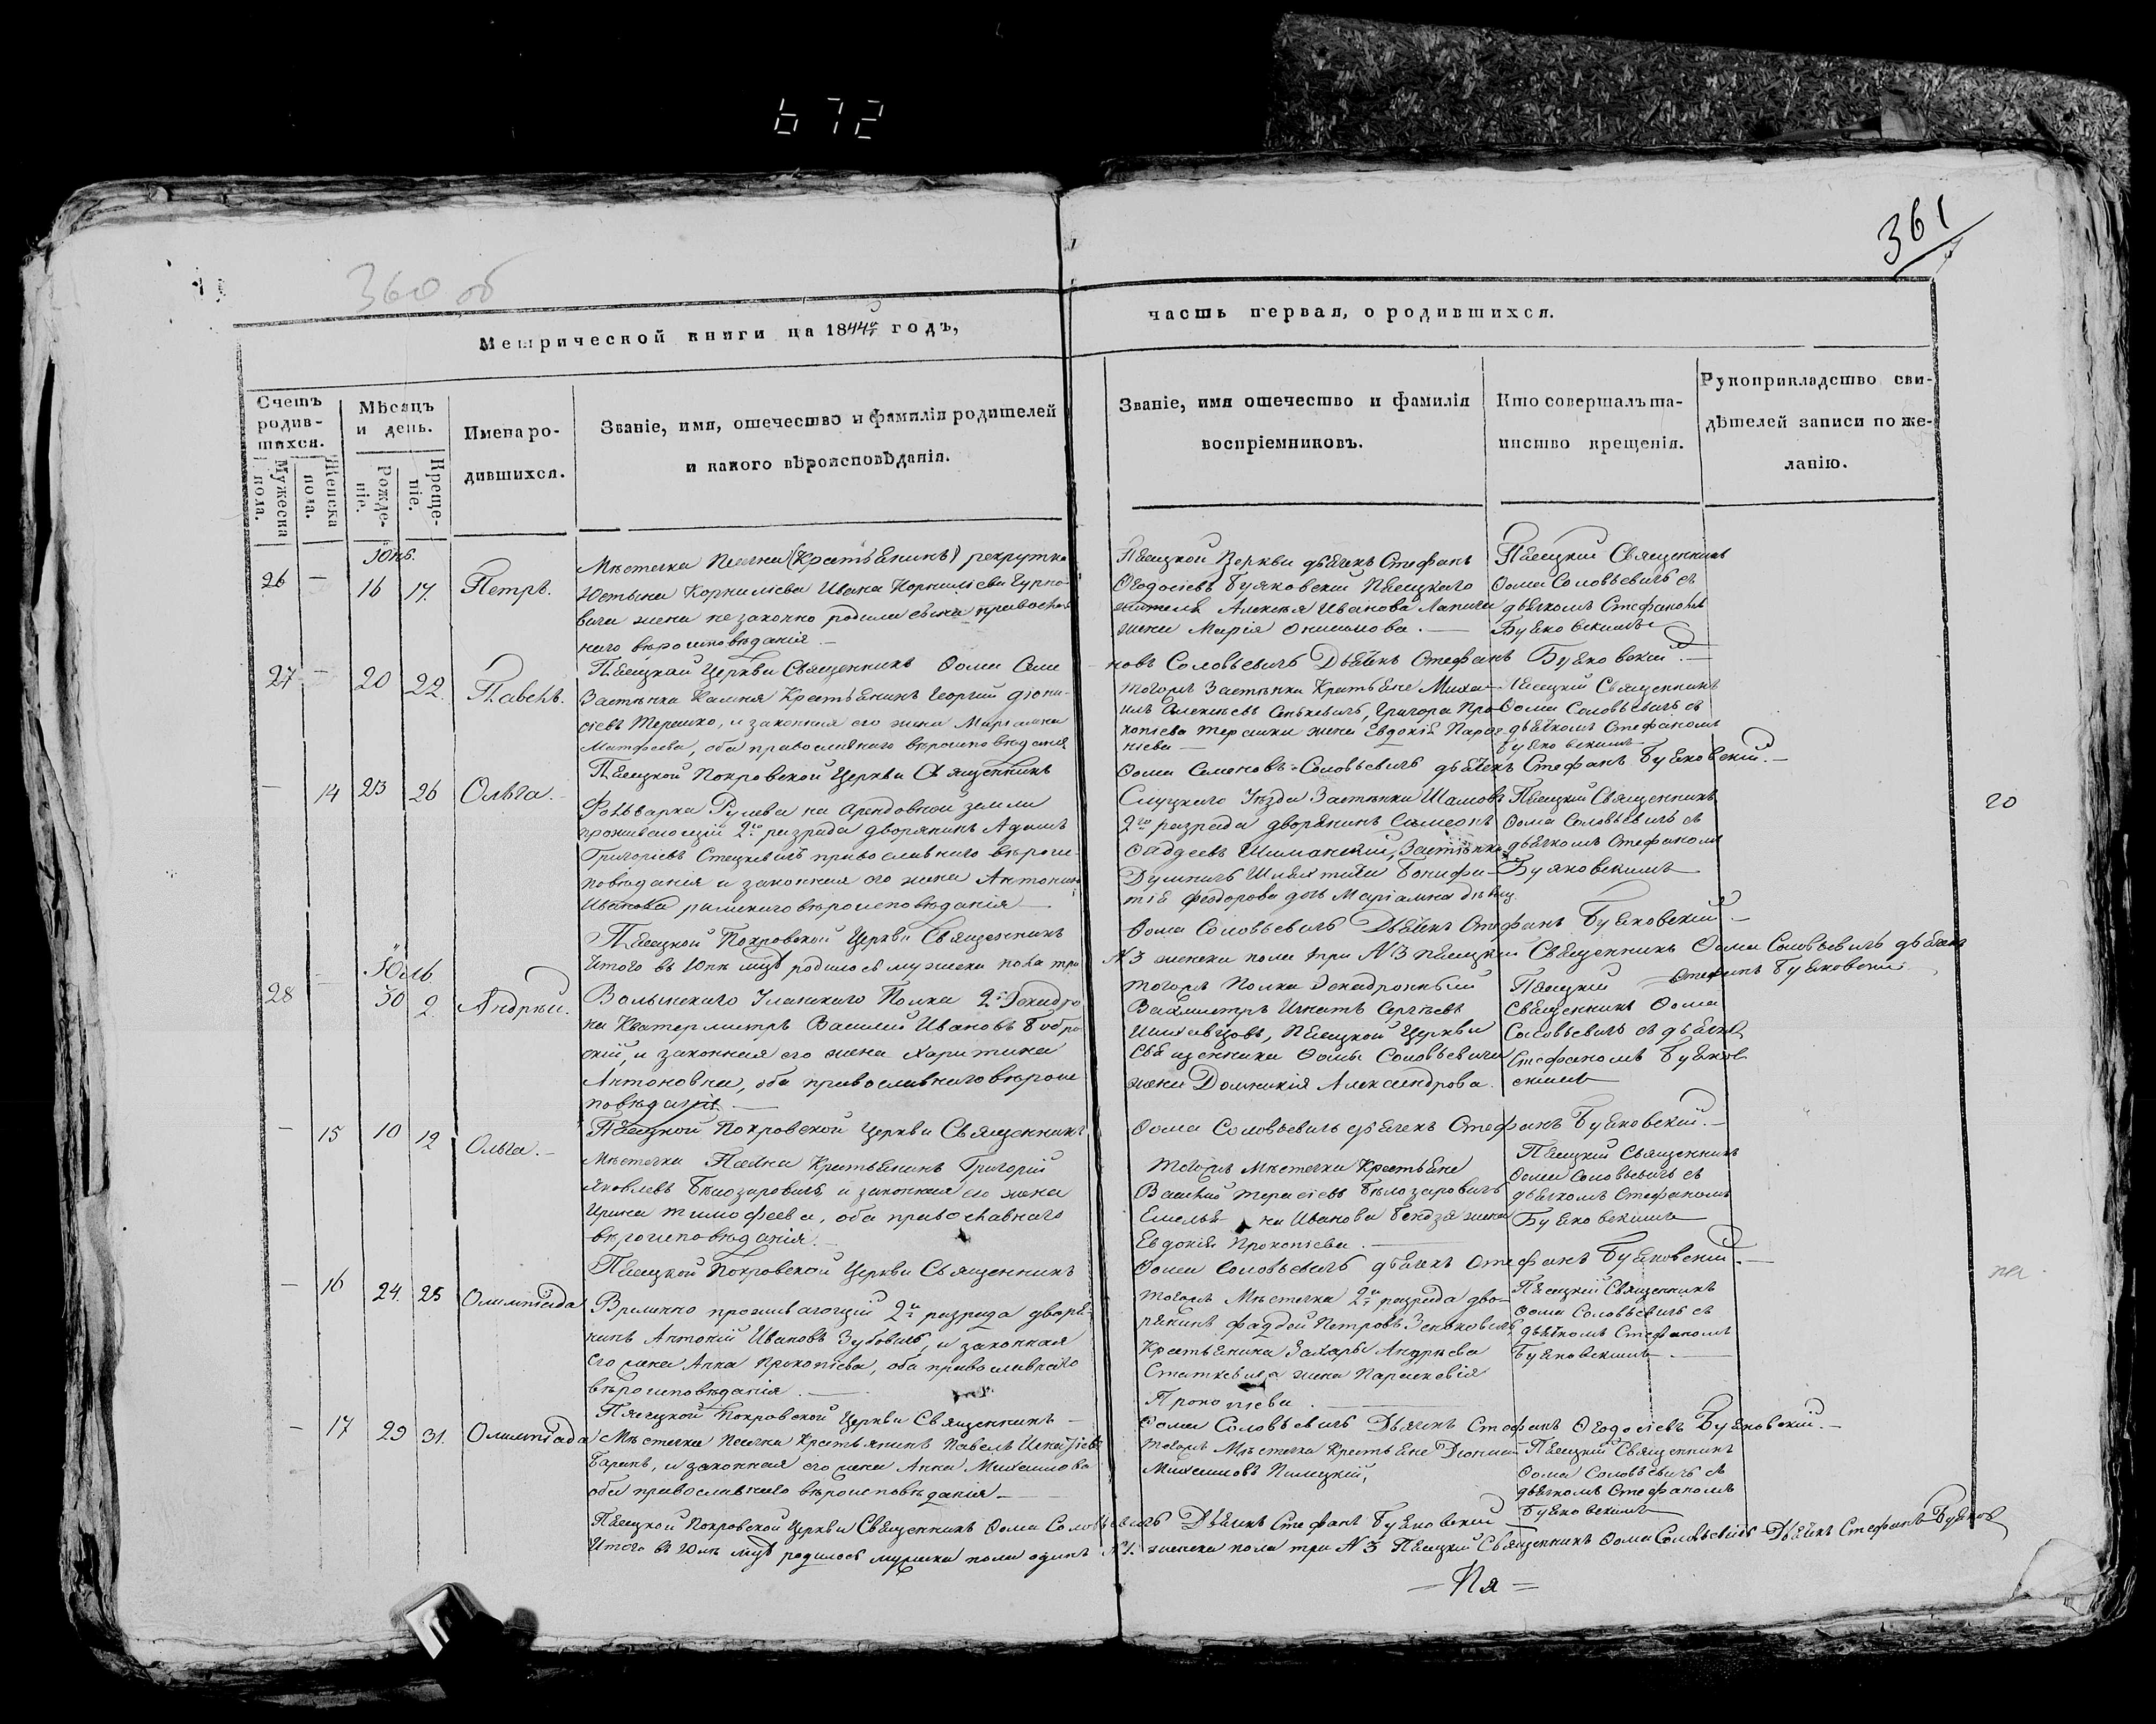 672
361
360 об
Метрической книги на 1844й годъ,
часть первая, о родившихся.
Счетъ родив-шихся.
Мужеска пола.
Женска пола.
Мѣсяцъ и день.
Рожде-ніе.
Креще-ніе.
Имена ро-
дившихся.
Званіе, имя, отечество и фамилія родителей
и какого вѣроисповѣданія.
Званіе, имя отечество и фамилія
воспріемниковъ.
Кто совершалъ та-
инство крещенія.
Рукоприкладство сви-
дѣтелей записи по же-
ланію.
Іюнь.
26 – 16 17. Петръ.
Мѣстечка Песочна (Крестьянинъ) рекрутка
Юстына Корнилiева Ивана Корнилiева
вича жена незаконно родила сына православ
наго вѣроисповѣданія –
Церкви дьячекъ Стефанъ
Ѳеодосіевъ Буяковскій
жителя Алексѣя Иванова Лапича
жена Марія Онисимова. –
Священникъ
Ѳома Соловьевичъ съ
дьячкомъ Стефаномъ
Буяковскимъ
Церкви Священникъ Ѳома Семе
новъ Соловьевичъ Дьячекъ Стефанъ Буяковскій. –
27. – 20 22. Павелъ.
Застѣнка Камня Крестьянинъ Георгій Діони-
сіевъ Терешко, и законная его жена Маріанна
Матфеева, оба православнаго вѣроисповѣданія
тогожъ Застѣнка Крестьяне Миха-
илъ Алексѣевъ Сенькевичъ, Григора Про
копіева Терешки жена Евдокія
Священникъ
Ѳома Соловьевичъ съ
дьячкомъ Стефаномъ
Буяковскимъ
Покровской Церкви Священникъ
Ѳома Семеновъ Соловьевичъ дьячекъ Стефанъ Буяковскій. –
– 14 23 26 Ольга. –
Фольварка Рулева на арендовной земли
проживающій 2го разряда дворянинъ Адамъ
Григоріевъ Стецкевичъ православнаго вѣроис-
повѣданія и законная его жена Антонина
Иванова римскаго вѣроисповѣданія –
Слуцкаго Уѣзда Застѣнка
2го разряда дворянинъ Симеонъ
Фаддеевъ Шиманскій, Застѣнка
Думничъ Шляхтича Бонифа-
тія Феодорова дочь Маріанна дѣвица
Священникъ
Ѳома Соловьевичъ съ
дьячкомъ Стефаномъ
Буяковскимъ
20
Покровской Церкви Священникъ
Ѳома Соловьевичъ Дьячекъ Стефанъ Буяковскій –
Итого въ Юнѣ мцѣ родилось мужеска пола три
№3 женска пола три №3 Священникъ Ѳома Соловьевичъ дьячекъ
Стефанъ Буяковскій
Юль
28 – 30 2. Андрѣй.
Волынскаго Уланскаго Полка 2го Эскадро
на Квартермистръ Василій Ивановъ Бобро
скій, и законная его жена Харитина
Антоновна, оба православнаго вѣроис
повѣданія. –
тогожъ Полка Эскадронный
Вахмистръ Игнатъ Сергѣевъ
Церкви
Священника Ѳомы Соловьевича
жена Домникія Александрова.
Священникъ Ѳома
Соловьевичъ съ дьячк
Стефаномъ Буяков
скимъ
Покровской Церкви Священникъ
Ѳома Соловьевичъ дьячекъ Стефанъ Буяковскій. –
– 15 10 12 Ольга. –
Мѣстечка Крестьянинъ Григорій
Яковлевъ Бѣлозаровичъ, и законная его жена
Ирина Тимофеева, оба православнаго
вѣроисповѣданія. –
тогожъ Мѣстечка Крестьяне
Василій Терасіевъ Бѣлозаровичъ
Емелья на Иванова жена
Евдокія Прокопіева. –
Священникъ
Ѳома Соловьевичъ съ
дьячкомъ Стефаномъ
Буяковскимъ
Покровской Церкви Священникъ
Ѳома Соловьевичъ дьячекъ Стефанъ Буяковскій. –
– 16 24. 25 Олимпіада
Временно проживающій 2го разряда дворя-
нинъ Антоній Ивановъ Зубовичъ, и законная
его жена Анна Прокопіева, оба православнаго
вѣроисповѣданія. –
тогожъ Мѣстечка 2го разряда дво-
рянинъ Фаддей Петровъ Зенковичъ
Крестьянина Захары Андрѣева
Статкевича жена Параскевія
Прокопіева. –
Священникъ
Ѳома Соловьевичъ съ
дьячкомъ Стефаномъ
Буяковскимъ. –
Покровской Церкви Священникъ –
Ѳома Соловьевичъ Дьячекъ Стефанъ Ѳеодосіевъ Буяковскій. –
– 17 29 31. Олимпіада
Мѣстечка Крестьянинъ Павелъ
Баранъ, и законная его жена Анна Михаилова
оба православнаго вѣроисповѣданія –
тогожъ Мѣстечка Крестьяне
Михаиловъ Пилецкій,
Священникъ
Ѳома Соловьевичъ съ
дьячкомъ Стефаномъ
Буяковскимъ
Покровской Церкви Священникъ Ѳома Соловьевичъ Дьячекъ Стефанъ Буяковскій
Итого въ Юлѣ мцѣ родилось мужеска пола одинъ №1. женска пола три №3 Священникъ Ѳома Соловьевичъ Дьячекъ Стефанъ Буяков
– Пя –